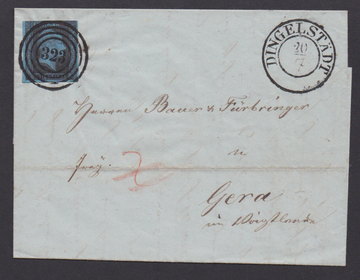 323
DINGELSTÄDT
20
7
Herren Bauer & Fürbringer
in
frey.
Gera
im Voigtlande